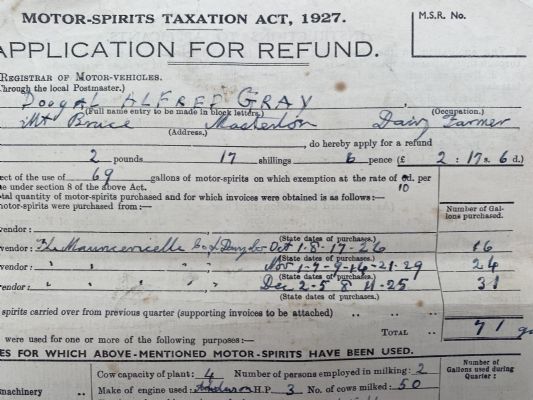 MOTOR-SPIRITS TAXATION ACT, 1927.
M.S.R. No.
APPLICATION FOR REFUND.
REGISTRAR OF MOTOR-VEHICLES.
Through the local Postmaster.)
DOUGAL ALFRED GRAY
(Full name entry to be made in block letters.) (Occupation.)
Mt Bruce Masterton Dairy Farmer
(Address.)
, do hereby apply for a refund
2 pounds 17 shillings 6 pence (£ 2 : 17 s. 6 d.)
ect of the use of 69 gallons of motor-spirits on which exemption at the rate of d. per
10
ue under section 8 of the above Act.
otal quantity of motor-spirits purchased and for which invoices were obtained is as follows:—
motor-spirits were purchased from:—
Number of Gallons purchased.
vendor: The Mauriceville Co. Oct 1-8-17-26 16
(State dates of purchases.)
vendor: " " " Nov 1-7-9-14-21-29 24
(State dates of purchases.)
vendor: " " " Dec 2-5 8 11-25 31
(State dates of purchases.)
spirits carried over from previous quarter (supporting invoices to be attached)
TOTAL 71
were used for one or more of the following purposes:—
ES FOR WHICH ABOVE-MENTIONED MOTOR-SPIRITS HAVE BEEN USED.
Number of Gallons used during Quarter:
Cow capacity of plant: 4 Number of persons employed in milking: 2
machinery Make of engine used: Anderson H.P. 3 No. of cows milked: 50